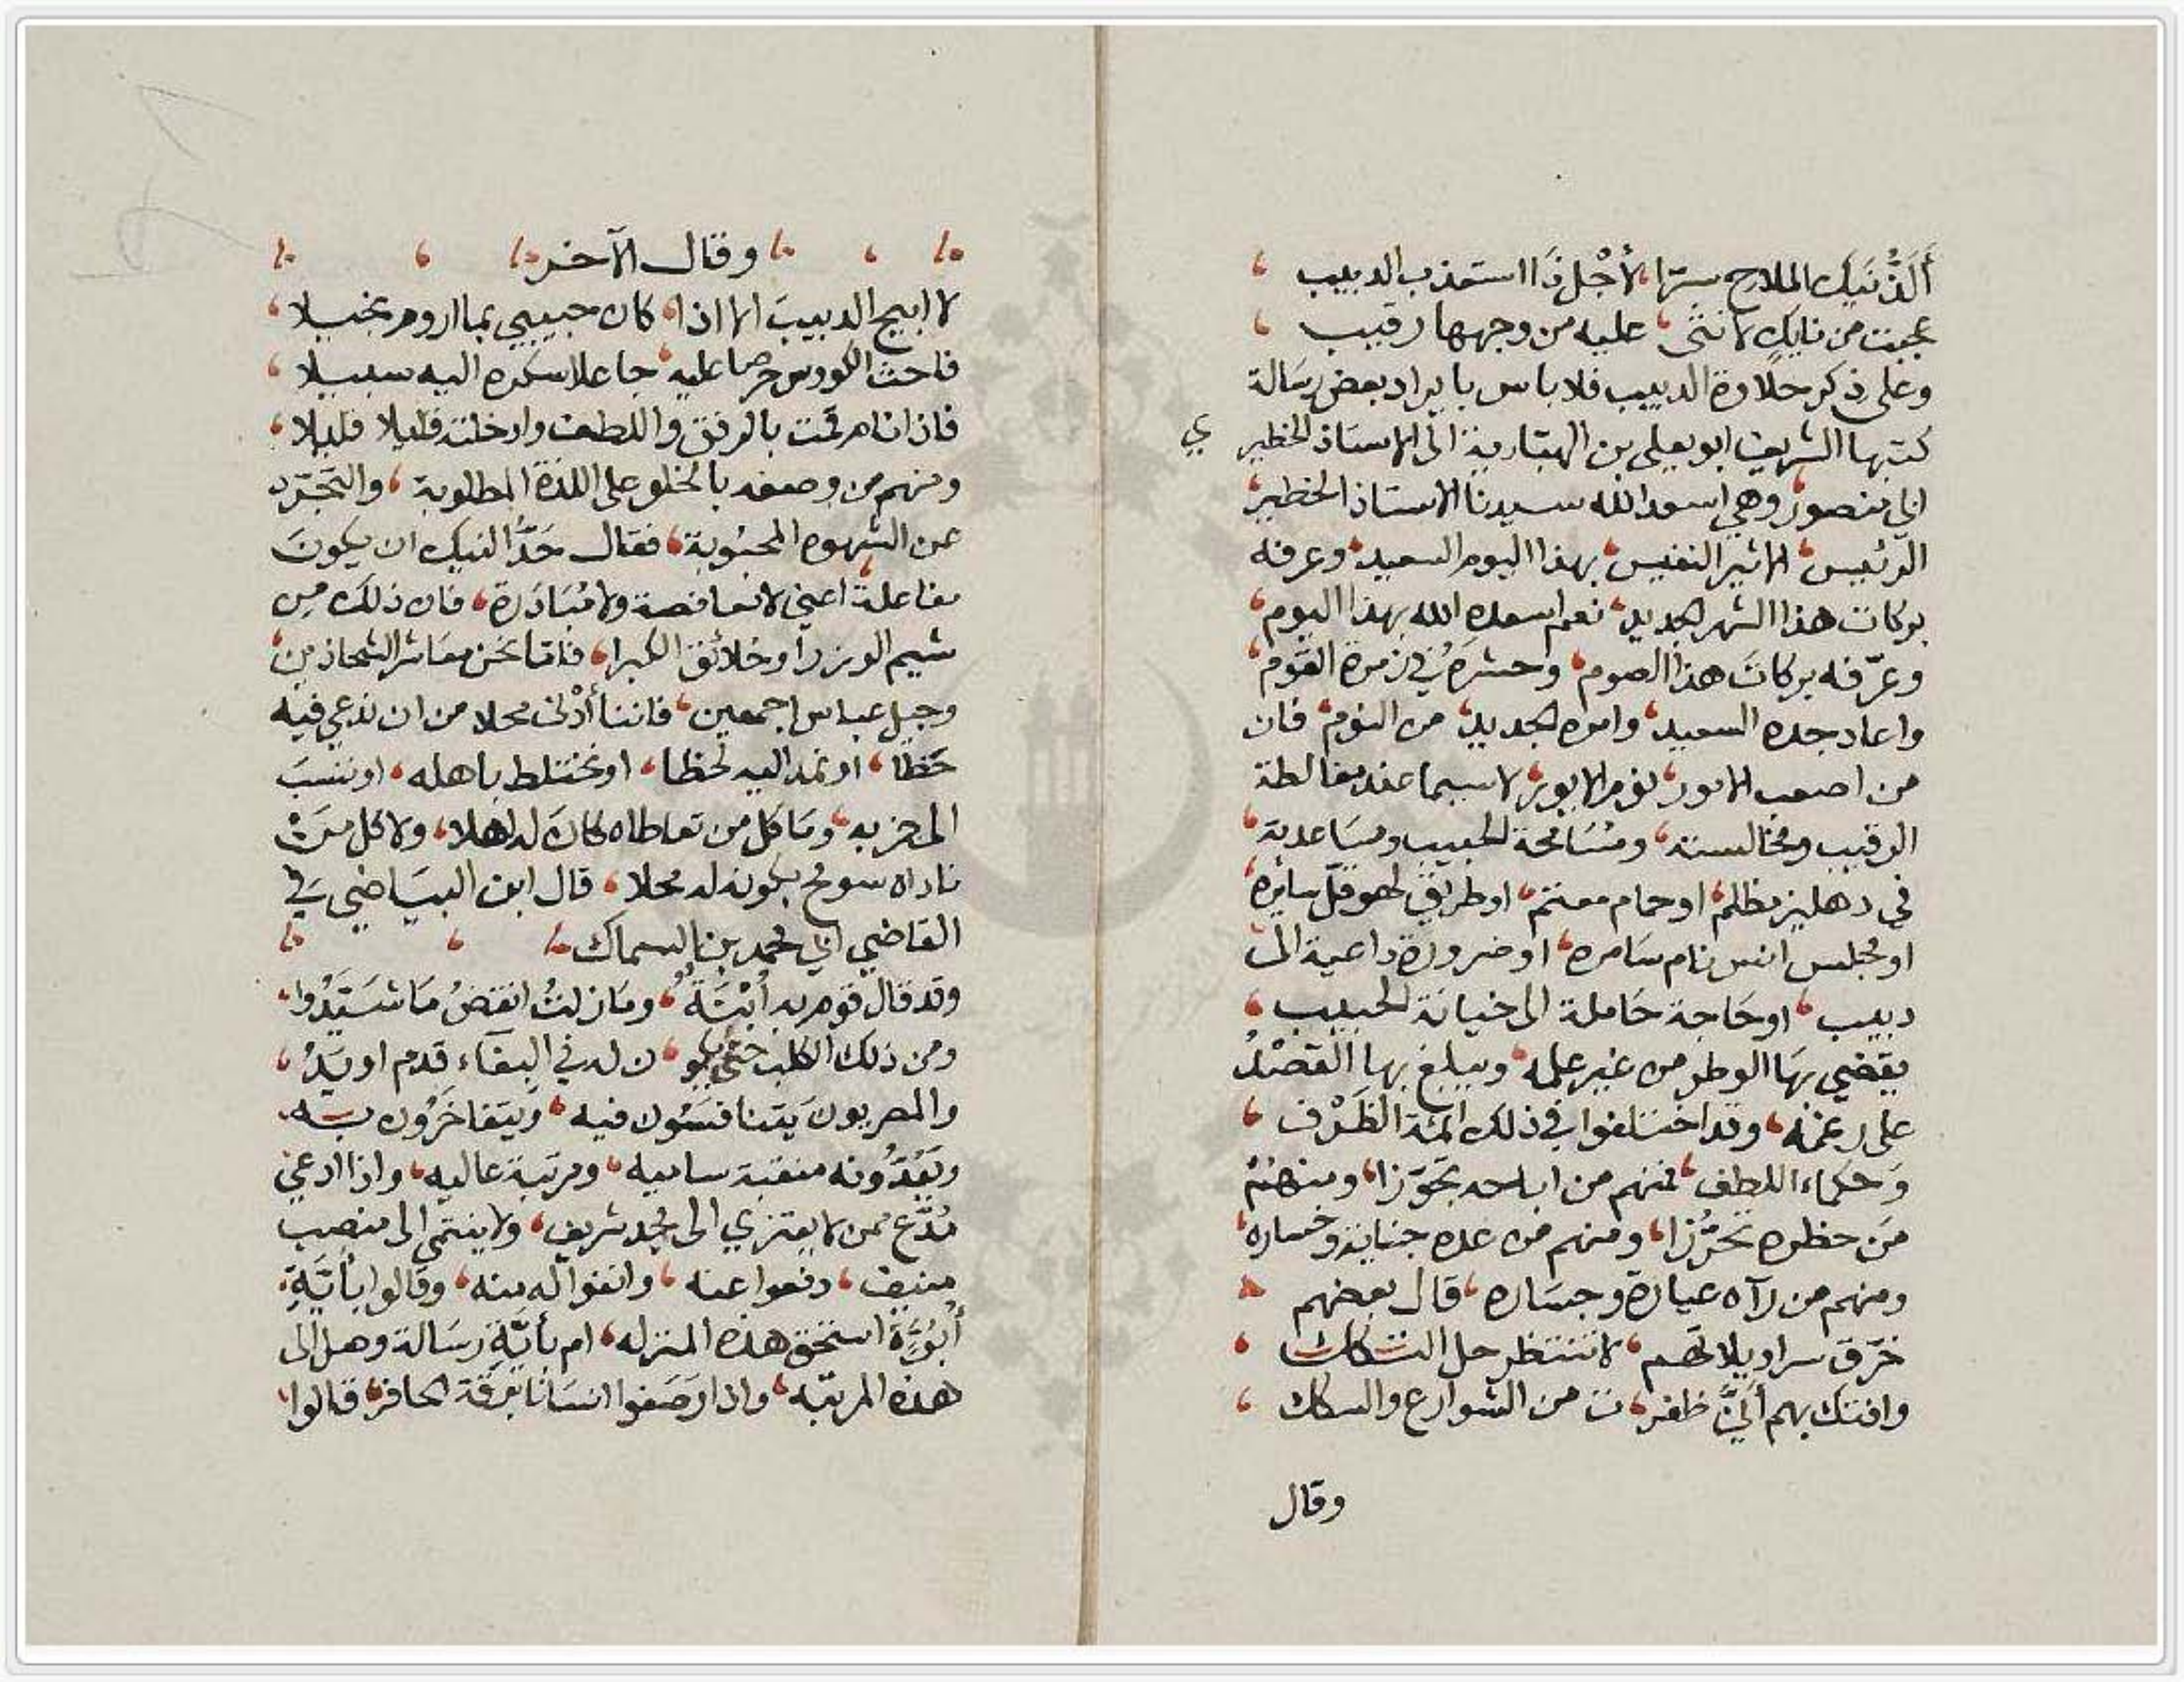 أَلَذُّ نَيك الملاح سترا، لأجْل ذَا استعذب الدبيب
عجبت من نايك لانثى، عليه من وجهها رقيب
وعلى ذكر حلاوة الدبيب فلا باس بايراد بعض رسالة
كتبها الشريف ابو يعلى بن الهبارية الى الاستاذ الخطير
ابي منصور، وهي اسعد الله سيدنا الاستاذ الخطير،
الرئيس، الاثير النفيس، بهذا اليوم السعيد، وعرفه
بركات هذا الشهر الجديد، نعم اسعده الله بهذا اليوم،
وعرّفه بركات هذا الصوم، وحشره في زمرة القوم،
واعاد جده السعيد، وامره الجديد، من النوم، فان
من اصعب الامور، نوم الايور، لا سيما عند مغالطة
الرقيب ومخالسته، ومسامحة الحبيب ومساعدته،
في دهليز مظلم، او حمام معتم، او طريق لهو قلّ سايره،
او مجلس انس نام سامره، او ضرورة داعية الى
دبيب، او حاجة حاملة الى خيانة الحبيب،
يقضي بها الوطر من غير علمه، ويبلغ بها القصد
على رغمه، وقد اختلفوا في ذلك ائمة الظَرْف،
وحكماء اللطف، فمنهم من اباحه تجوّزا، ومنهم
من حظره تحرّزا، ومنهم من عده جناية وخساره،
ومنهم من رآه عيارة وجساره، قال بعضهم
خرّق سراويلاتهم، لا تنتظر حل التكاك،
وافتك بهم أنَّى ظفر، ت من الشوارع والسكاك،
وقال
وقال الآخر
لا ابيح الدبيب الا اذا، كان حبيبي بما اروم بخيلا،
فاحث الكووس حرصا عليه، جاعلا سكره اليه سبيلا،
فاذا نام قمت بالرفق واللطف وادخلته قليلا قليلا،
ومنهم من وصفه بالخلو على اللذة المطلوبة، والتجرّد
عن الشهوه المحبوبة، فقال حَدُّ النيك ان يكون
مفاعلة، اعني لا مغافصة ولا مُبَادَرة، فان ذلك من
شيم الوزرا وخلائق الكبرا، فامّا نحن معاشر الشحاذين،
وجيل عباس اجمعين، فاننا أَدْنى محلا من ان ندعي فيه
حَظا، او نمد اليه لحظا، او نختلط باهله، او ننسب
الى حزبه، وما كل من تعاطاه كان له اهلا، ولا كل من
ناداه سومح بكونه له محلا، قال ابن البياضي في
القاضي ابي محمد بن السماك
وقد قال قوم به أُبْنَةٌ، وما زلت انقض ما شَيَّدُوا،
ومن ذلك الكلب حتى يكو، ن له في البغاء قدم او يَدُ،
والمصريون يتنافسون فيه، ويتفاخرون به،
ويَعُدُّونه منقبة ساميه، ومرتبة عاليه، واذا ادعى
مُدَّع ممن لا يعتزي الى مجد شريف، ولا ينتمي الى منصب
منيف، دفعوا عنه، وانفوا له منه، وقالوا بأيَّةِ
أُبُوَّة استحق هذه المنزله، ام بأيَّةِ رسالة وصل الى
هذه المرتبه، واذا وصفوا انسانا بفرقة الحافر، قالوا